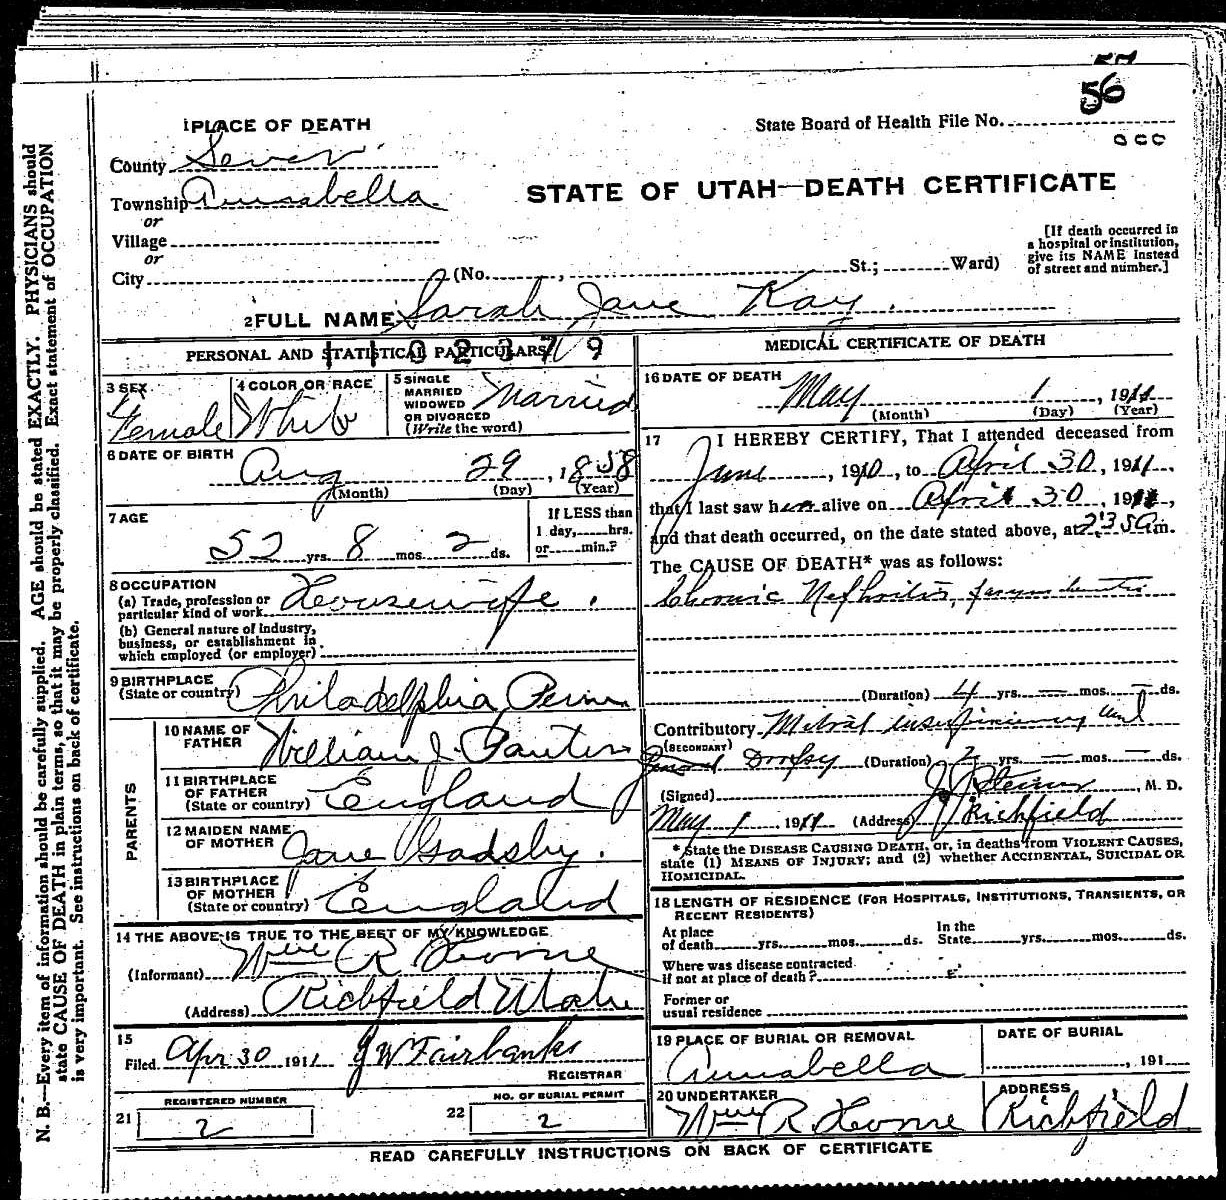 57
56
1 PLACE OF DEATH
State Board of Health File No.
County Sevier
Township Annabella
STATE OF UTAH—DEATH CERTIFICATE
or
Village
or
City (No. , St.; Ward)
[If death occurred in a hospital or institution, give its NAME instead of street and number.]
2 FULL NAME Sarah Jane Kay.
PERSONAL AND STATISTICAL PARTICULARS
1102379
3 SEX
Female
4 COLOR OR RACE
White
5 SINGLE
MARRIED
WIDOWED
OR DIVORCED
(Write the word)
Married
6 DATE OF BIRTH
Aug 29, 1858
(Month) (Day) (Year)
7 AGE
52 yrs. 8 mos. 2 ds.
If LESS than
1 day, hrs.
or min.?
8 OCCUPATION
(a) Trade, profession or
particular kind of work
Housewife.
(b) General nature of industry,
business, or establishment in
which employed (or employer)
9 BIRTHPLACE
(State or country)
Philadelphia Penn
PARENTS
10 NAME OF
FATHER
William J.
11 BIRTHPLACE
OF FATHER
(State or country)
England
12 MAIDEN NAME
OF MOTHER
Jane Gadsby.
13 BIRTHPLACE
OF MOTHER
(State or country)
England
14 THE ABOVE IS TRUE TO THE BEST OF MY KNOWLEDGE
(Informant) Wm R
(Address) Richfield Utah
15
Filed Apr 30 1911 J W Fairbanks
REGISTRAR
21 REGISTERED NUMBER
2
22 NO. OF BURIAL PERMIT
2
MEDICAL CERTIFICATE OF DEATH
16 DATE OF DEATH
May 1, 1911
(Month) (Day) (Year)
17 I HEREBY CERTIFY, That I attended deceased from
June, 1910, to April 30, 1911,
that I last saw her alive on April 30, 1911,
and that death occurred, on the date stated above, at 2:35 a m.
The CAUSE OF DEATH* was as follows:
Chronic Nephritis,
(Duration) 4 yrs. — mos. — ds.
Contributory Mitral insufficiency and
(SECONDARY)
General Dropsy (Duration) 2 yrs. — mos. — ds.
(Signed) J J Steiner, M. D.
May 1 1911 (Address) Richfield
* State the DISEASE CAUSING DEATH, or, in deaths from VIOLENT CAUSES,
state (1) MEANS OF INJURY; and (2) whether ACCIDENTAL, SUICIDAL OR
HOMICIDAL.
18 LENGTH OF RESIDENCE (FOR HOSPITALS, INSTITUTIONS, TRANSIENTS, OR
RECENT RESIDENTS)
At place
of death yrs. mos. ds.
In the
State yrs. mos. ds.
Where was disease contracted
if not at place of death?
Former or
usual residence
19 PLACE OF BURIAL OR REMOVAL
Annabella
DATE OF BURIAL
, 191
20 UNDERTAKER
Wm R
ADDRESS
Richfield
READ CAREFULLY INSTRUCTIONS ON BACK OF CERTIFICATE
N. B.—Every item of information should be carefully supplied. AGE should be stated EXACTLY. PHYSICIANS should
state CAUSE OF DEATH in plain terms, so that it may be properly classified. Exact statement of OCCUPATION
is very important. See instructions on back of certificate.